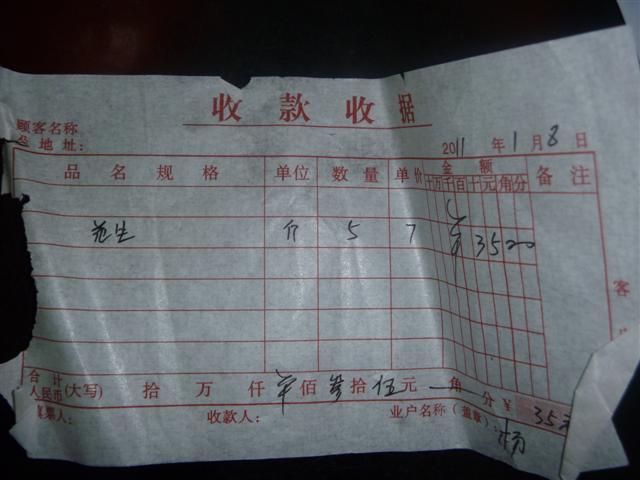 收款收据
顾客名称
2011年1月8日
地址:
品名规格 单位 数量 单价 金额 备注
十万千百十元角分
5 7 ¥3500
合计
人民币(大写) 拾 万 仟 佰 叁拾伍元 角 分¥ 35元
收款人: 业户名称(盖章): 杨
客